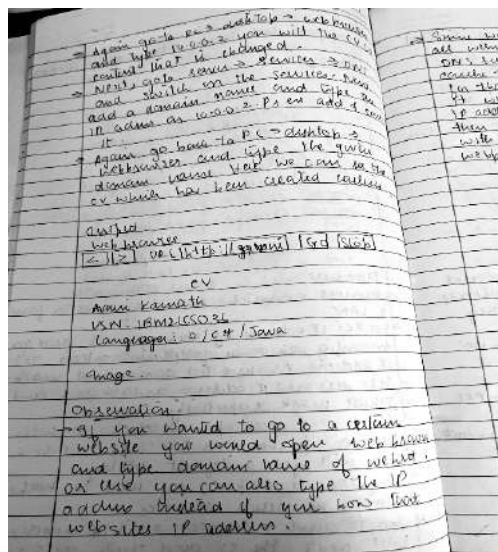 → Again go to PC → desktop → webbrowser
and type 10.0.0.2 you will the cv
content that is changed.
→ Next, goto server → services → DNS
and switch on the services. Next
add a domain name and type the
IP address as 10.0.0.2. Press add & save
it.
→ Again go back to PC → desktop →
webbrowser and type the given
domain name we can see the
cv which has been created earlier
Output
Web browser
[<] [>] URL [http://] [Go] [Stop]
CV
Kamath
USN: 1BM21CS036
Languages: C/C++/Java
Image.
Observation
→ If you wanted to go to a certain
website you would open web browser
and type domain name of
or else you can also type the IP
address instead if you know that
websites IP address.
→ Since
all
DNS
IP add
then
with